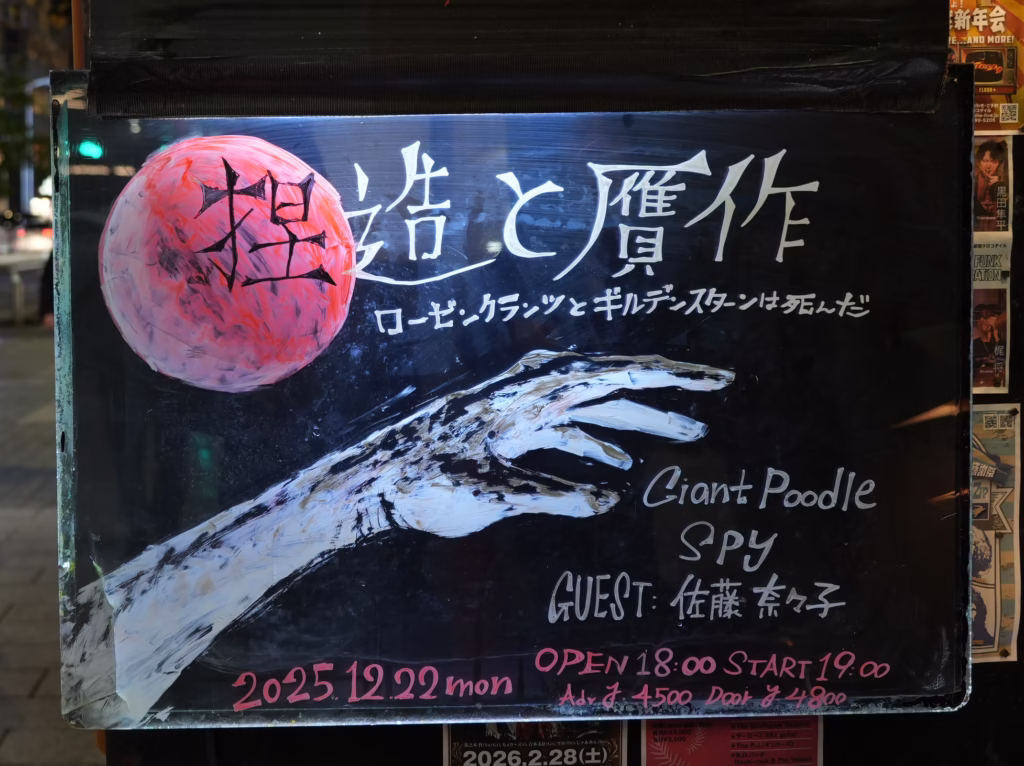 捏造と贋作
ローゼンクランツとギルデンスターンは死んだ
Giant Poodle
Spy
GUEST: 佐藤 奈々子
2025.12.22mon
OPEN 18:00 START 19:00
Adv ¥ 4500 Door ¥ 4800
新年会
AND MORE!
黒田隼平
FUNK
2026.2.28(土)